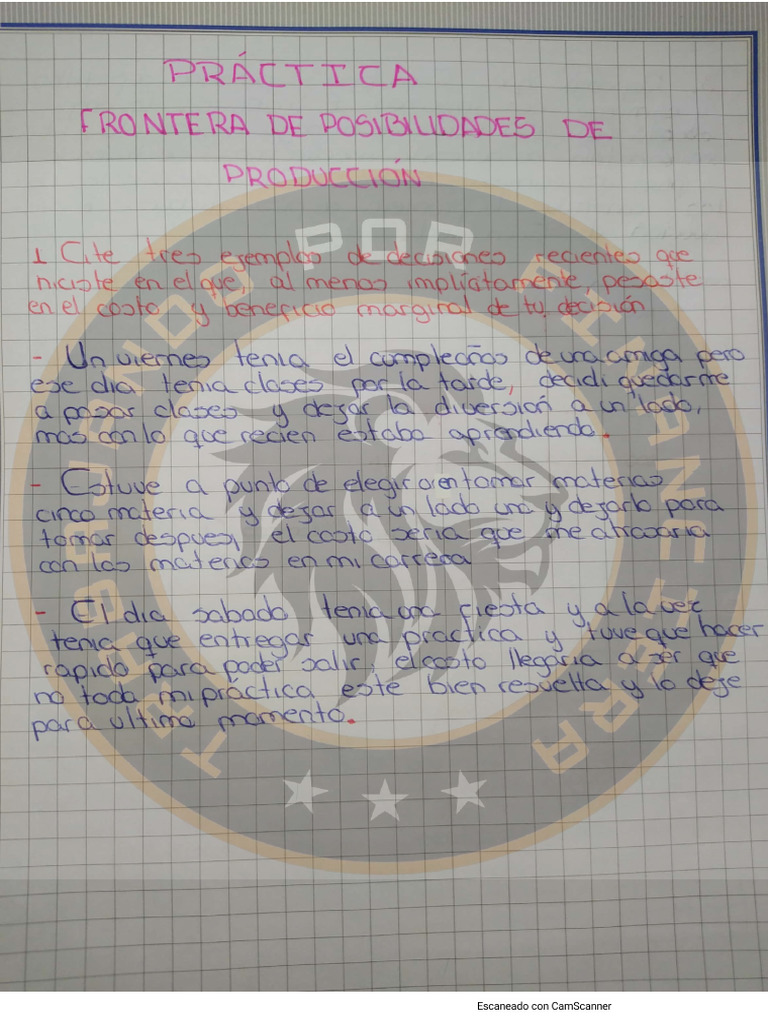 PRÁCTICA
FRONTERA DE POSIBILIDADES DE
PRODUCCIÓN
1 Cite tres ejemplos de decisiones recientes que
hiciste en el que, al menos implícitamente, pesaste
en el costo y beneficio marginal de tu decisión
- Un viernes tenia el cumpleaños de una amiga pero
ese dia tenia clases por la tarde, decidi quedarme
a pasar clases y dejar la diversión a un lado,
mas con lo que recien estaba aprendiendo.
- Estuve a punto de elegir en tomar materias
cinco materia y dejar a un lado una y dejarlo para
tomar despues, el costo seria que me atrasaria
con las materias en mi carrera
- El dia sabado tenia una fiesta y a la vez
tenia que entregar una practica y tuve que hacer
rapido para poder salir, el costo llegaria a ser que
no toda mi práctica este bien resuelta y lo deje
para ultimo momento.
TRIUNFANDO POR EXCELENCIA
Escaneado con CamScanner